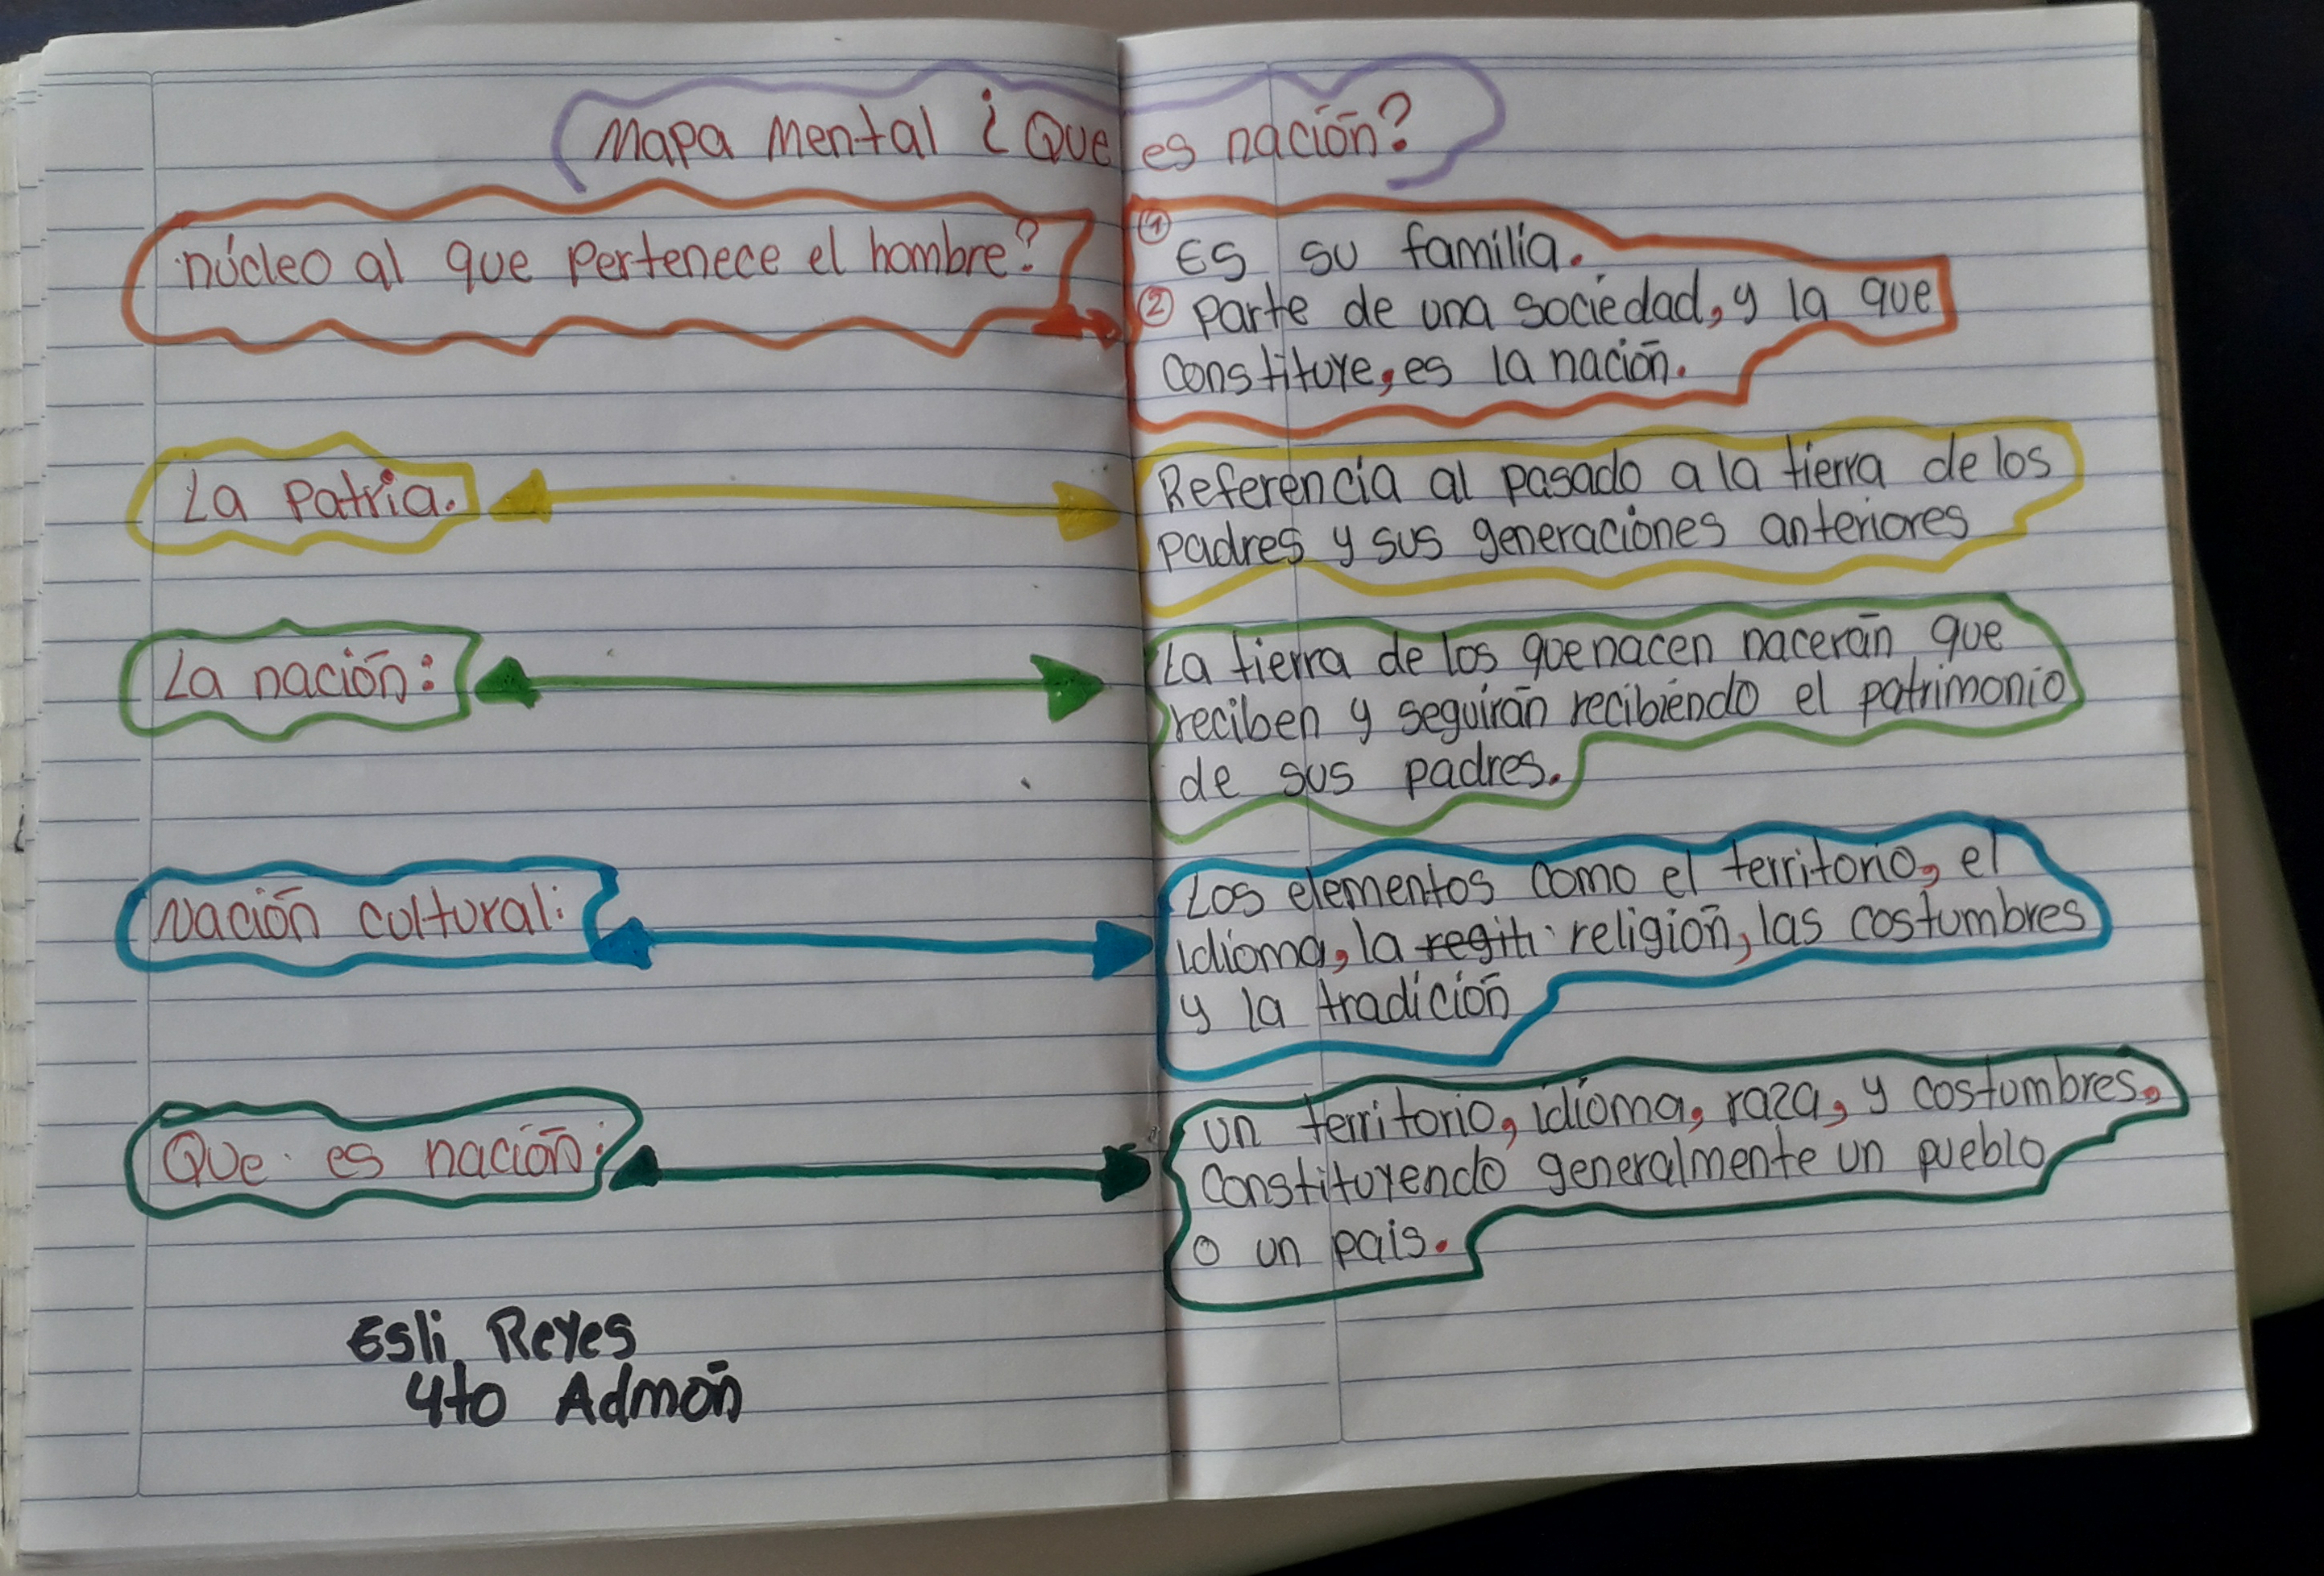 Mapa Mental ¿Que es nación?
núcleo al que pertenece el hombre?
① Es su familia.
② parte de una sociedad, y la que
constituye, es la nación.
La patria.
Referencia al pasado a la tierra de los
padres y sus generaciones anteriores
La nación:
La tierra de los que nacen nacerán que
reciben y seguirán recibiendo el patrimonio
de sus padres.
Nación cultural:
Los elementos como el territorio, el
idioma, la regiti religión, las costumbres
y la tradición
Que es nación:
un territorio, idioma, raza, y costumbres,
constituyendo generalmente un pueblo
o un pais.
Esli Reyes
4to Admón